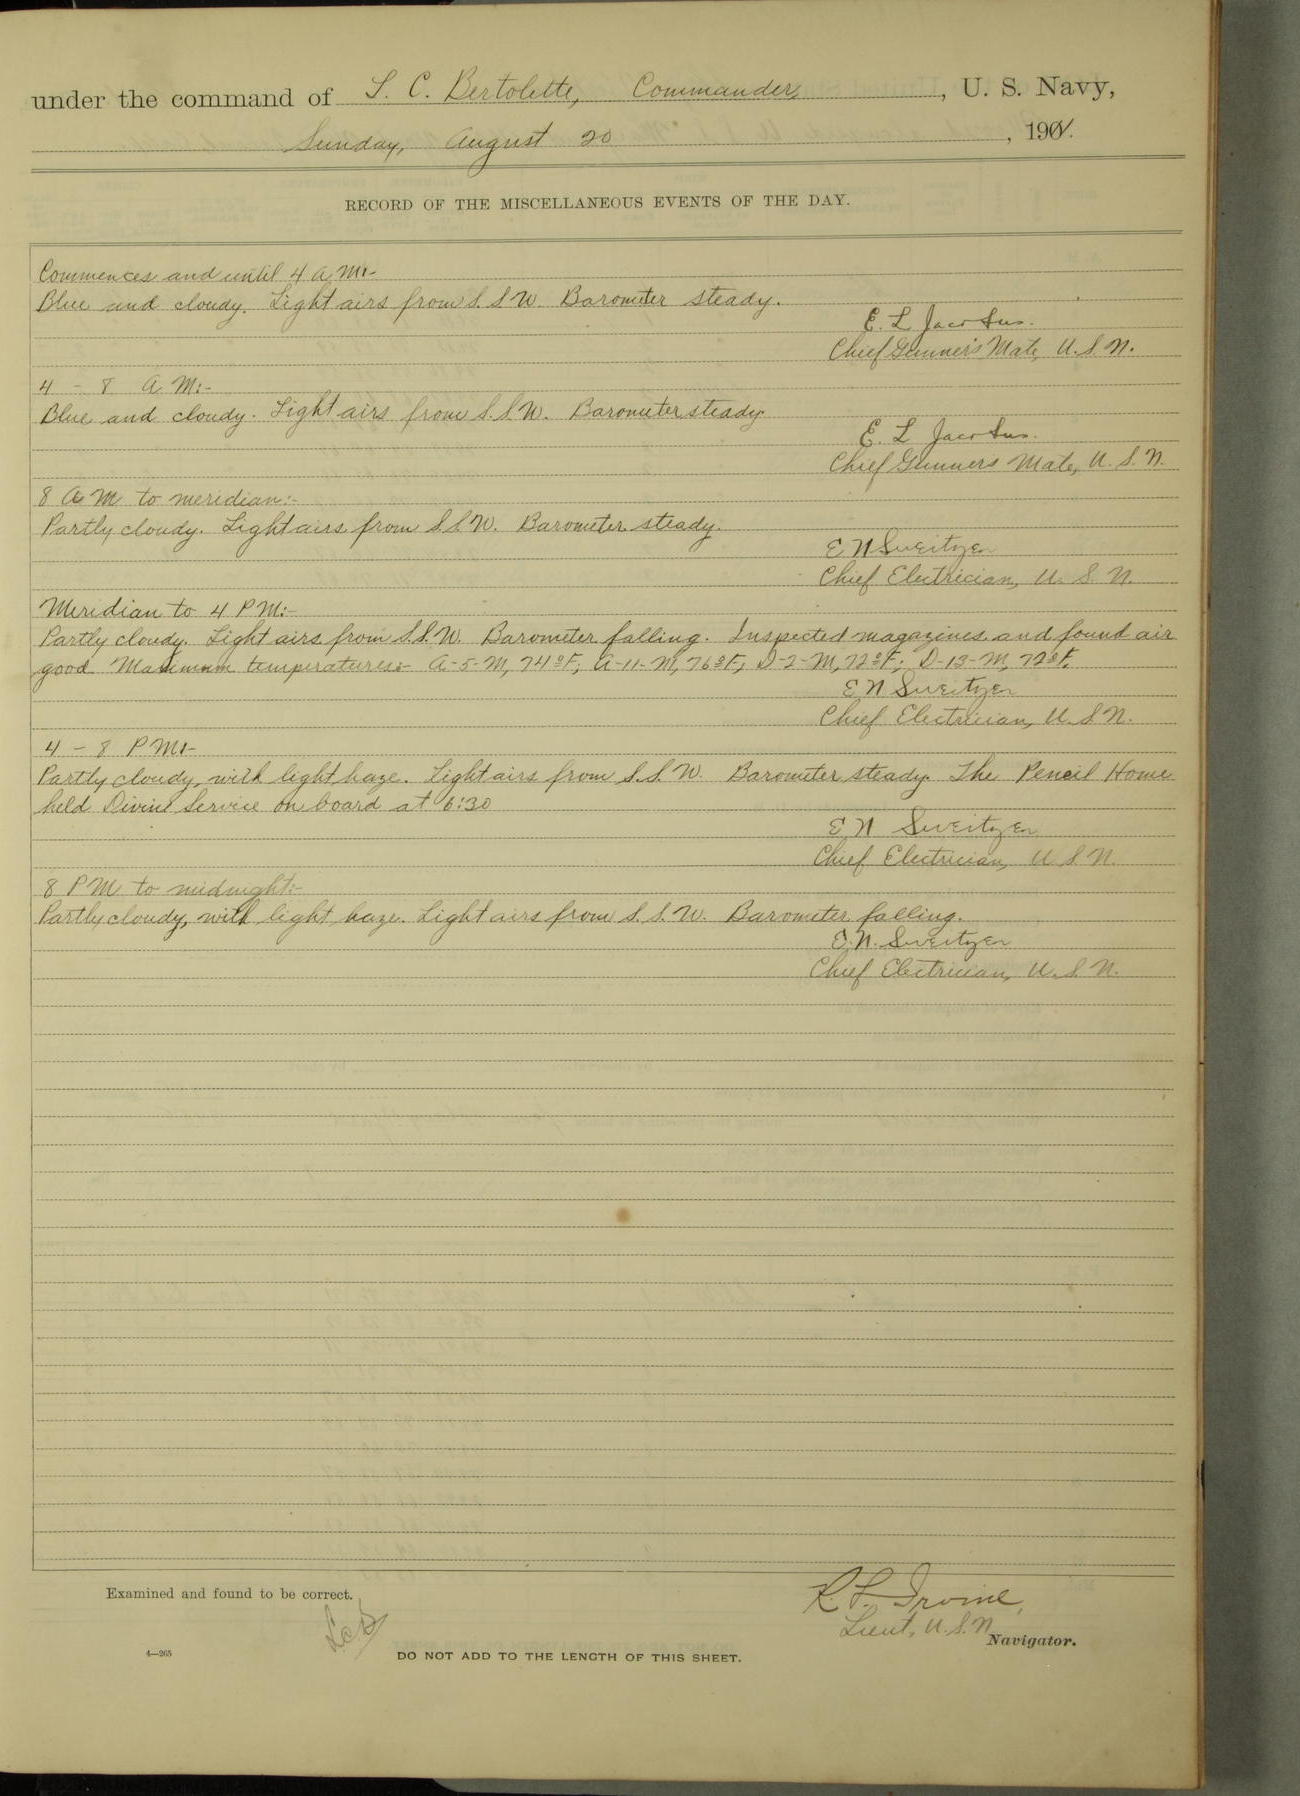 under the command of L. C. Bertolette, Commander, U. S. Navy,
Sunday, August 20, 191
RECORD OF THE MISCELLANEOUS EVENTS OF THE DAY.
Commences and until 4 A M:-
Blue and cloudy. Light airs from S.S.W. Barometer steady.
E. L. Jacobus.
Chief Gunner's Mate, U.S.N.
4 - 8 A M:-
Blue and cloudy. Light airs from S.S.W. Barometer steady.
E. L Jacobus.
Chief Gunners Mate, U.S.N.
8 A M to meridian:-
Partly cloudy. Light airs from S.S.W. Barometer steady.
E N Sweitzer
Chief Electrician, U. S. N.
Meridian to 4 P M:-
Partly cloudy. Light airs from S.S.W. Barometer falling. Inspected magazines and found air
good. Maximum temperatures:- A-5-M, 74°F; A-11-M, 76°F; D-2-M, 72°F; D-13-M, 72°F.
E N Sweitzer
Chief Electrician, U.S.N.
4 - 8 P M:-
Partly cloudy, with light haze. Light airs from S.S.W. Barometer steady. The Peniel Home
held Divine Service on board at 6:30
E N Sweitzer
Chief Electrician, U S N.
8 P M to midnight:-
Partly cloudy, with light haze. Light airs from S.S.W. Barometer falling.
E. N. Sweitzer
Chief Electrician, U.S.N.
Examined and found to be correct.
R. L. Irvine,
LCB
Lieut, U.S.N.
Navigator.
4—265
DO NOT ADD TO THE LENGTH OF THIS SHEET.